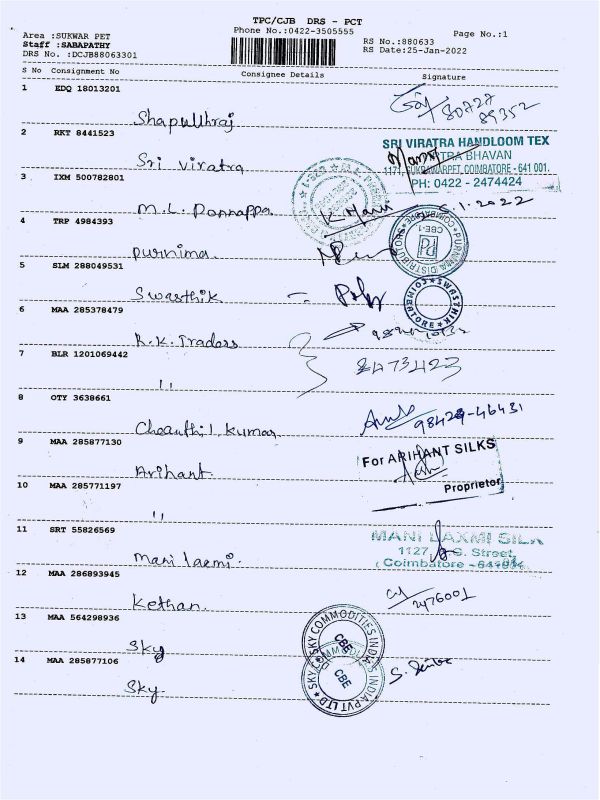 TPC/CJB DRS - PCT
Phone No.:0422-3505555
Page No.:1
Area :SUKWAR PET
Staff :SABAPATHY
DRS No. :DCJB88063301
RS No.:880633
RS Date:25-Jan-2022
S No Consignment No Consignee Details Signature
1 EDQ 18013201
80727
89352
2 RKT 8441523
Sri Viratra
SRI VIRATRA HANDLOOM TEX
VIRATRA BHAVAN
1171, SUKRAWARPET, COIMBATORE - 641 001.
PH: 0422 - 2474424
3 IXM 500782801
M.L. Ponnappa
K. Mani
4 TRP 4984393
Purnima
PURNIMA DISTRIBUTORS
COIMBATORE
CBE-1
5 SLM 288049531
Swasthik
SWASTHIK
COIMBATORE
6 MAA 285378479
K.K. Traders
7 BLR 1201069442
8473423
8 OTY 3638661
98429-46431
9 MAA 285877130
Arihant
For ARIHANT SILKS
Proprietor
10 MAA 285771197
11 SRT 55826569
Mani laxmi.
MANI LAXMI SILK
1127, Street,
Coimbatore
12 MAA 286893945
Kethan
2476001
13 MAA 564298936
Sky
SKY COMMODITIES INDIA PVT LTD
CBE
14 MAA 285877106
Sky
SKY COMMODITIES INDIA PVT LTD
CBE